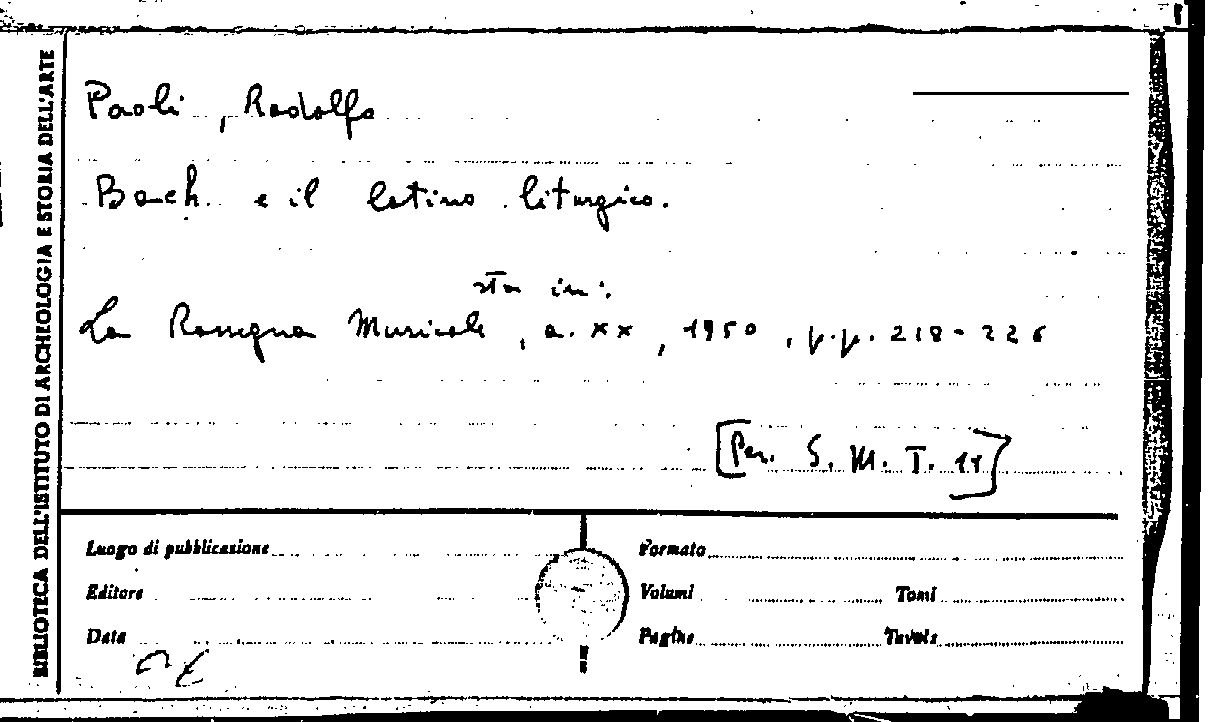 BIBLIOTECA DELL'ISTITUTO DI ARCHEOLOGIA E STORIA DELL'ARTE
Paoli, Rodolfo
Bach e il latino liturgico.
sta in:
La Rassegna Musicale, a. XX, 1950, p.p. 218-226
[Per. S. M. T. 11]
Luogo di pubblicazione
Formato
Editore
Volumi Tomi
Data
Pagine Tavole